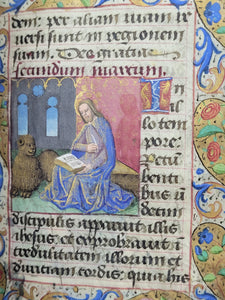 dem: per aliam viam re
versi sunt in regionem
suam. Deo gratias
secundum marcum.
In
illo tem
pore:
Recu(m)
benti
bus u(n)
decim
discipulis apparuit illis
ihesus: et exprobravit i(n)
credulitatem illorum et
duriciam cordis: quia his